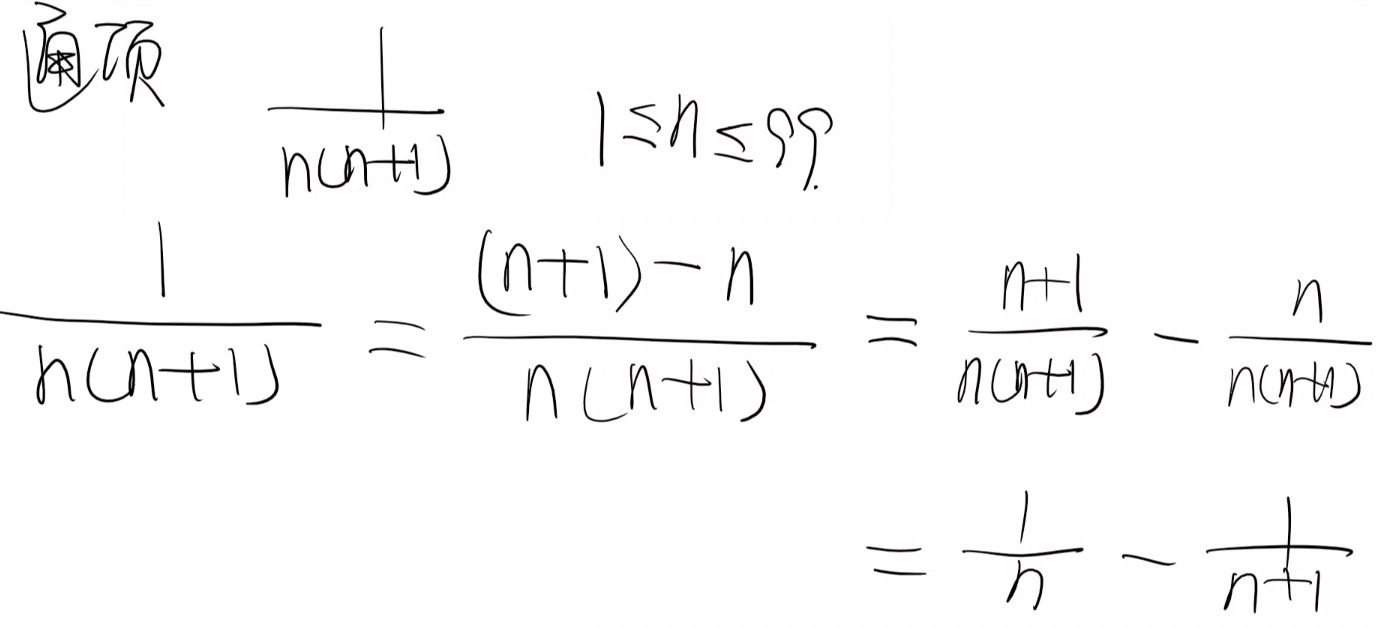 通项 1/n(n+1) 1≤n≤99
1/n(n+1) = (n+1)-n/n(n+1) = n+1/n(n+1) - n/n(n+1)
= 1/n - 1/n+1